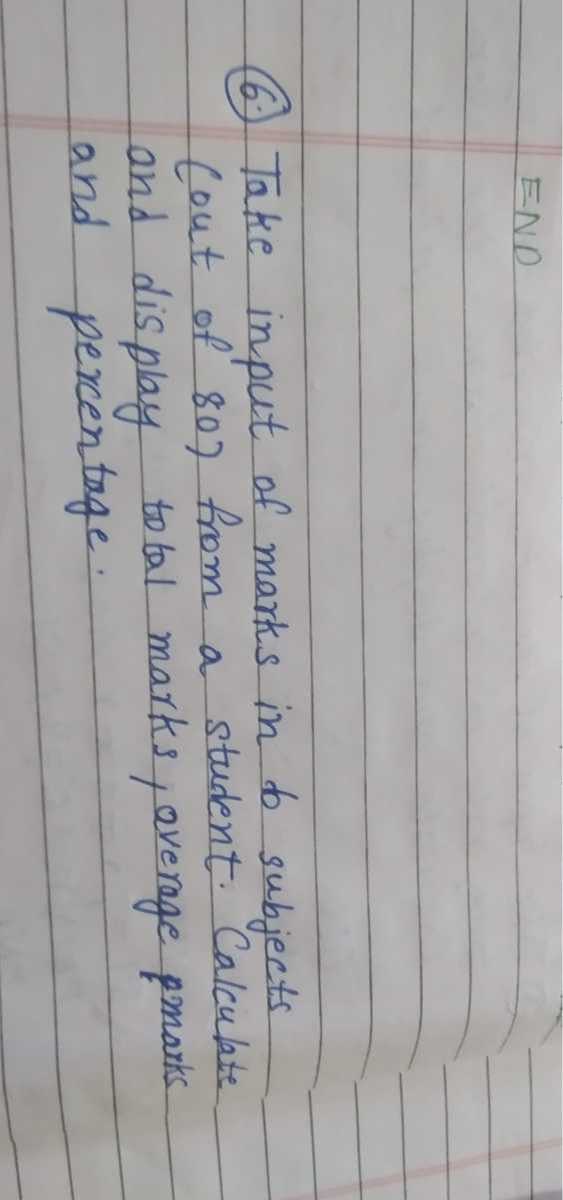 END
6. Take input of marks in 6 subjects
(out of 80) from a student. Calculate
and display total marks, average marks
and percentage.